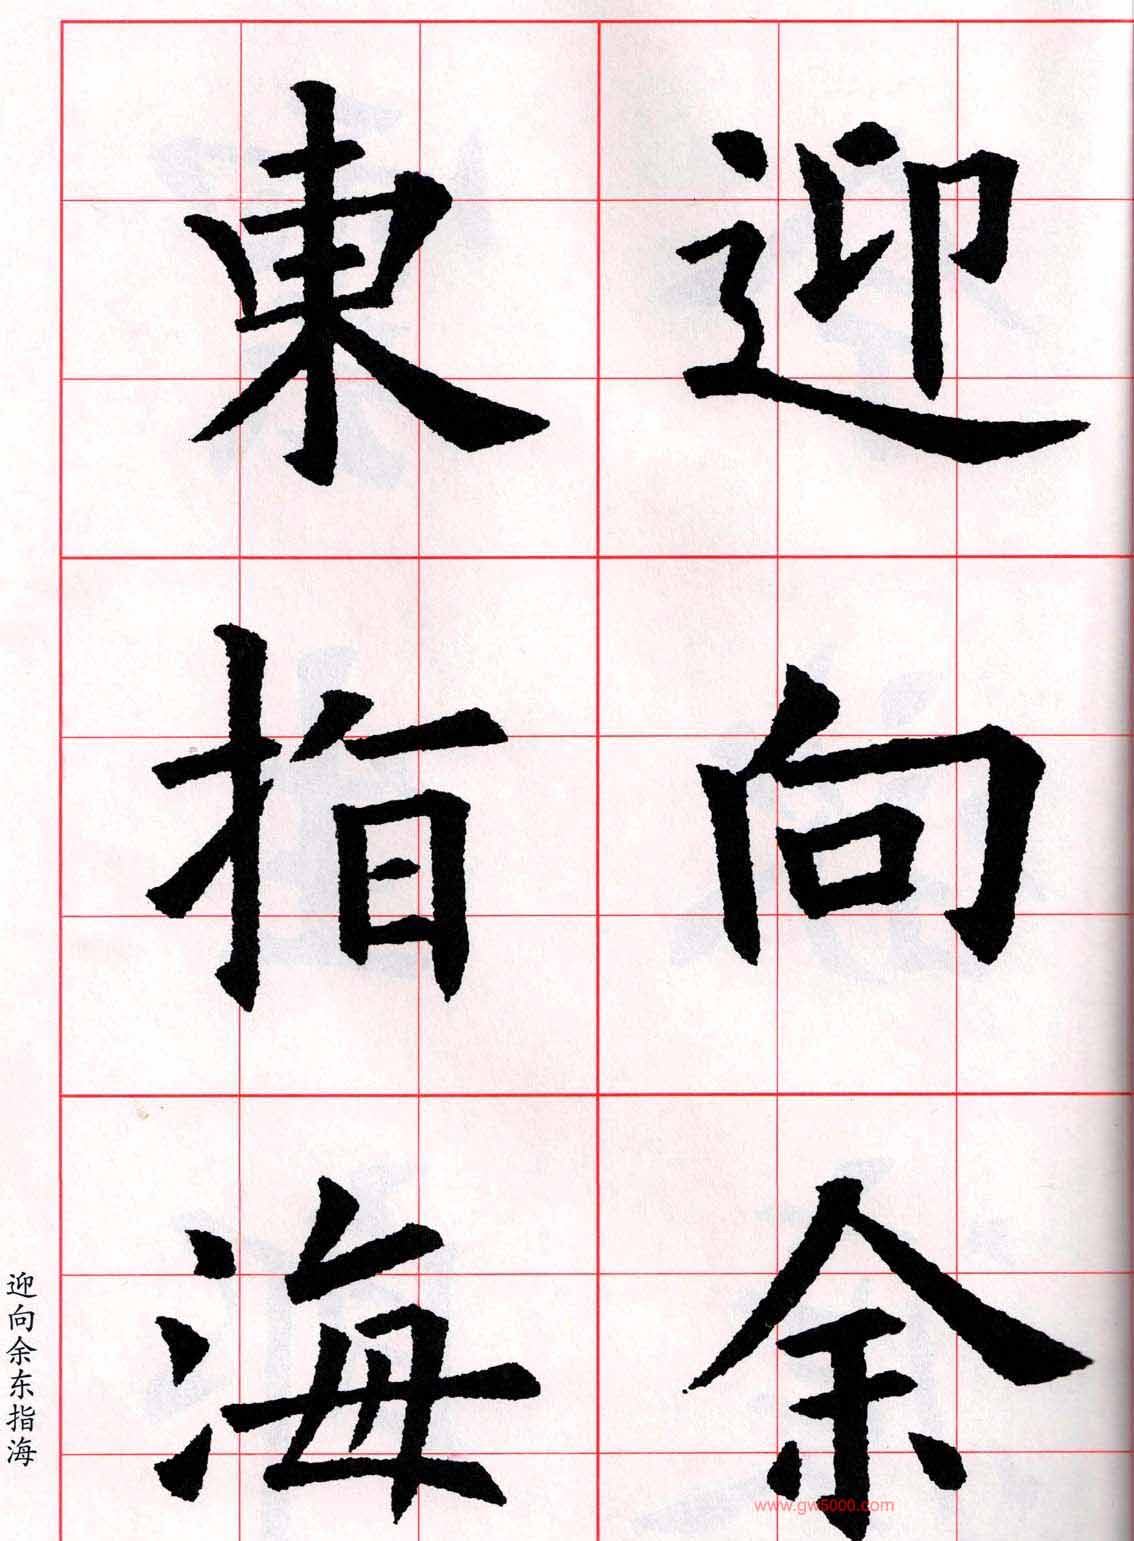 迎向余
東指海
迎向余东指海
www.gw5000.com